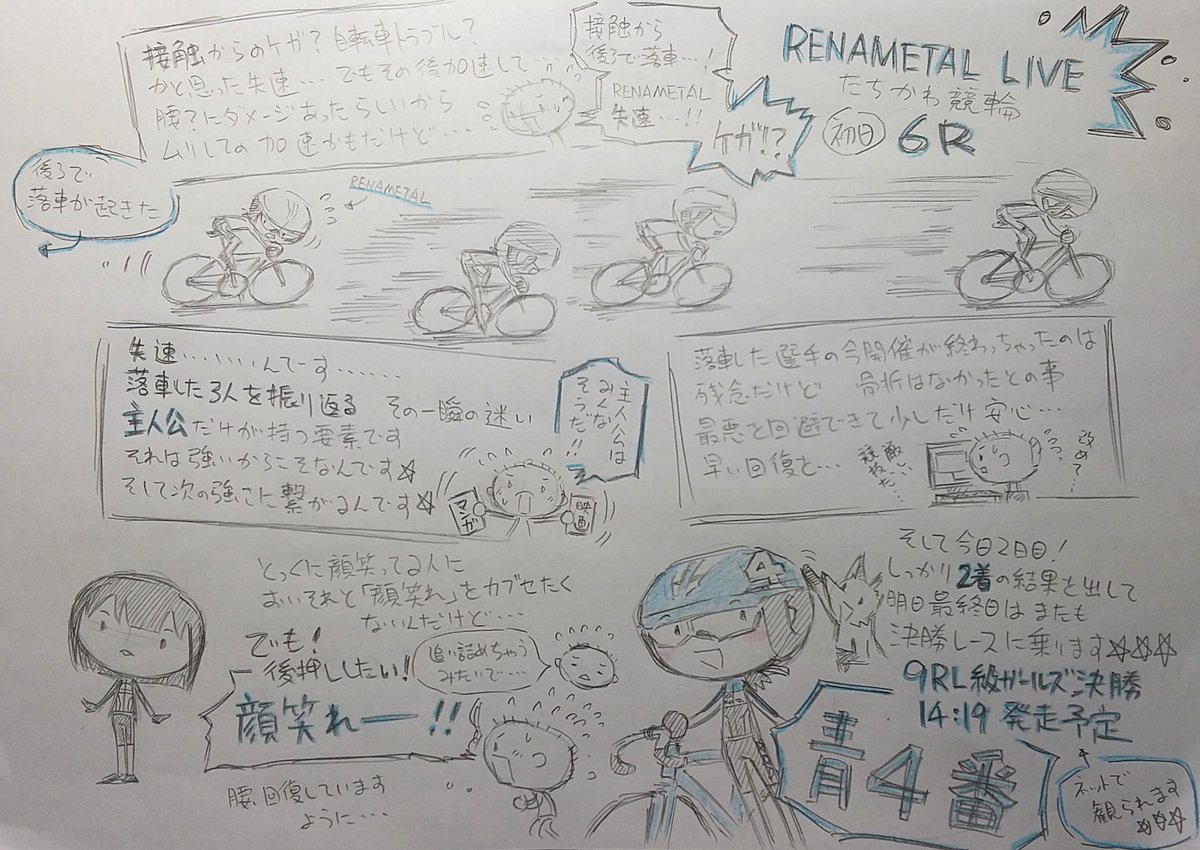 RENAMETAL LIVE
たちかわ競輪
初日 6R
接触から
後ろで落車…!
RENAMETAL
失速…!!
ケガ!?
接触からのケガ?自転車トラブル?
かと思った失速…でもその後加速して…
腰?にダメージあったらしいから
ムリしての加速かもだけど…
後ろで
落車が起きた
RENAMETAL
失速………んでーす……
落車した3人を振り返る その一瞬の迷い
主人公だけが持つ要素です
それは強いからこそなんです☆
そして次の強さに繋がるんです☆
主人公は
みんな
そうだ!!
マンガ
映画
落車した選手の今開催が終わっちゃったのは
残念だけど 骨折はなかったとの事
最悪を回避できて少しだけ安心…
早い回復を…
改めて…
とっくに顔笑ってる人に
おいそれと「顔笑れ」をカブせたく
ないんだけど…
でも!
後押ししたい!
顔笑れー!!
追い詰めちゃう
みたいで…
腰、回復しています
ように…
4
そして今日2日目!
しっかり2着の結果を出して
明日最終日はまたも
決勝レースに乗ります☆☆☆
9R L級ガールズ決勝
14:19 発走予定
青4番
ネットで
観られます
☆☆☆